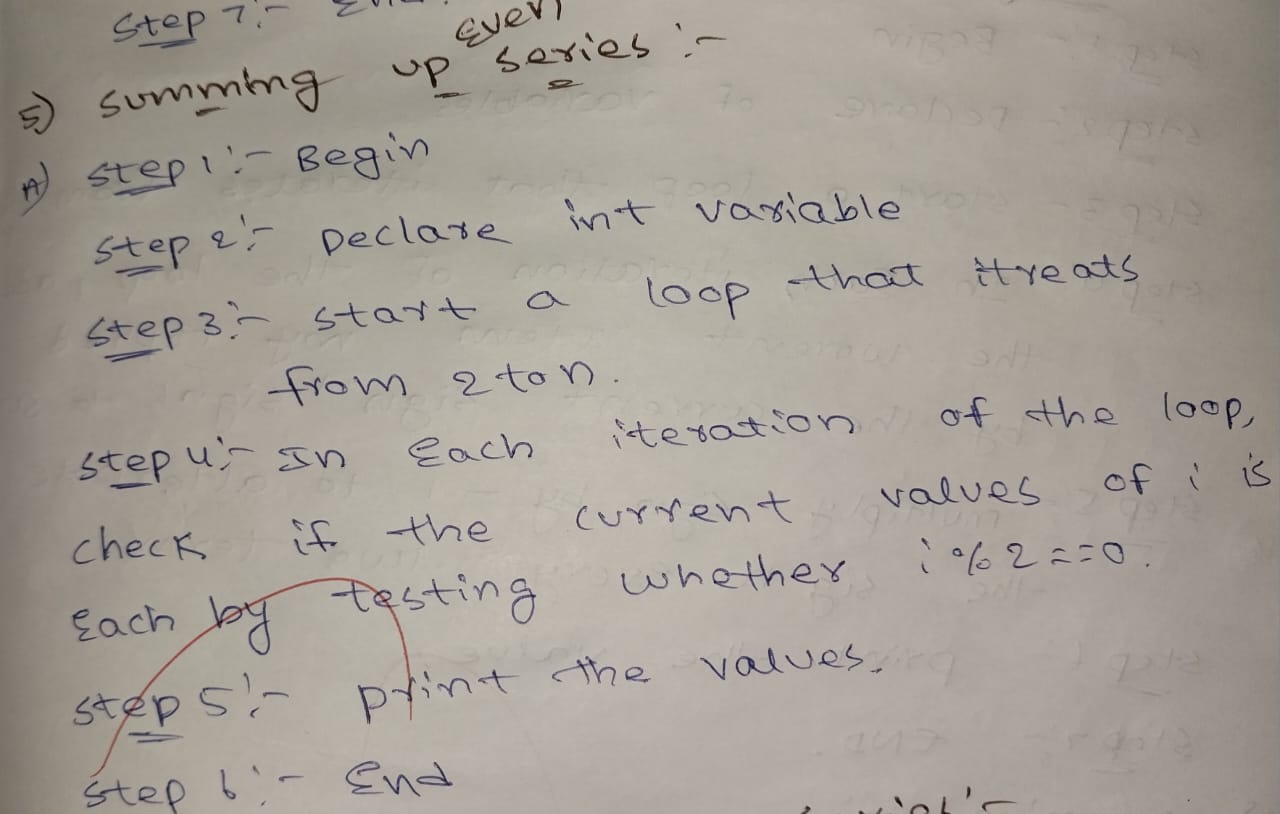 Step 7:-
5) summing up Even series :-
A) step 1:- Begin
step 2:- Declare int variable
step 3:- start a loop that itreats
from 2 to n.
step 4:- In Each iteration of the loop,
check if the current values of i is
Each by testing whether i % 2 == 0.
step 5:- print the values.
step 6:- End